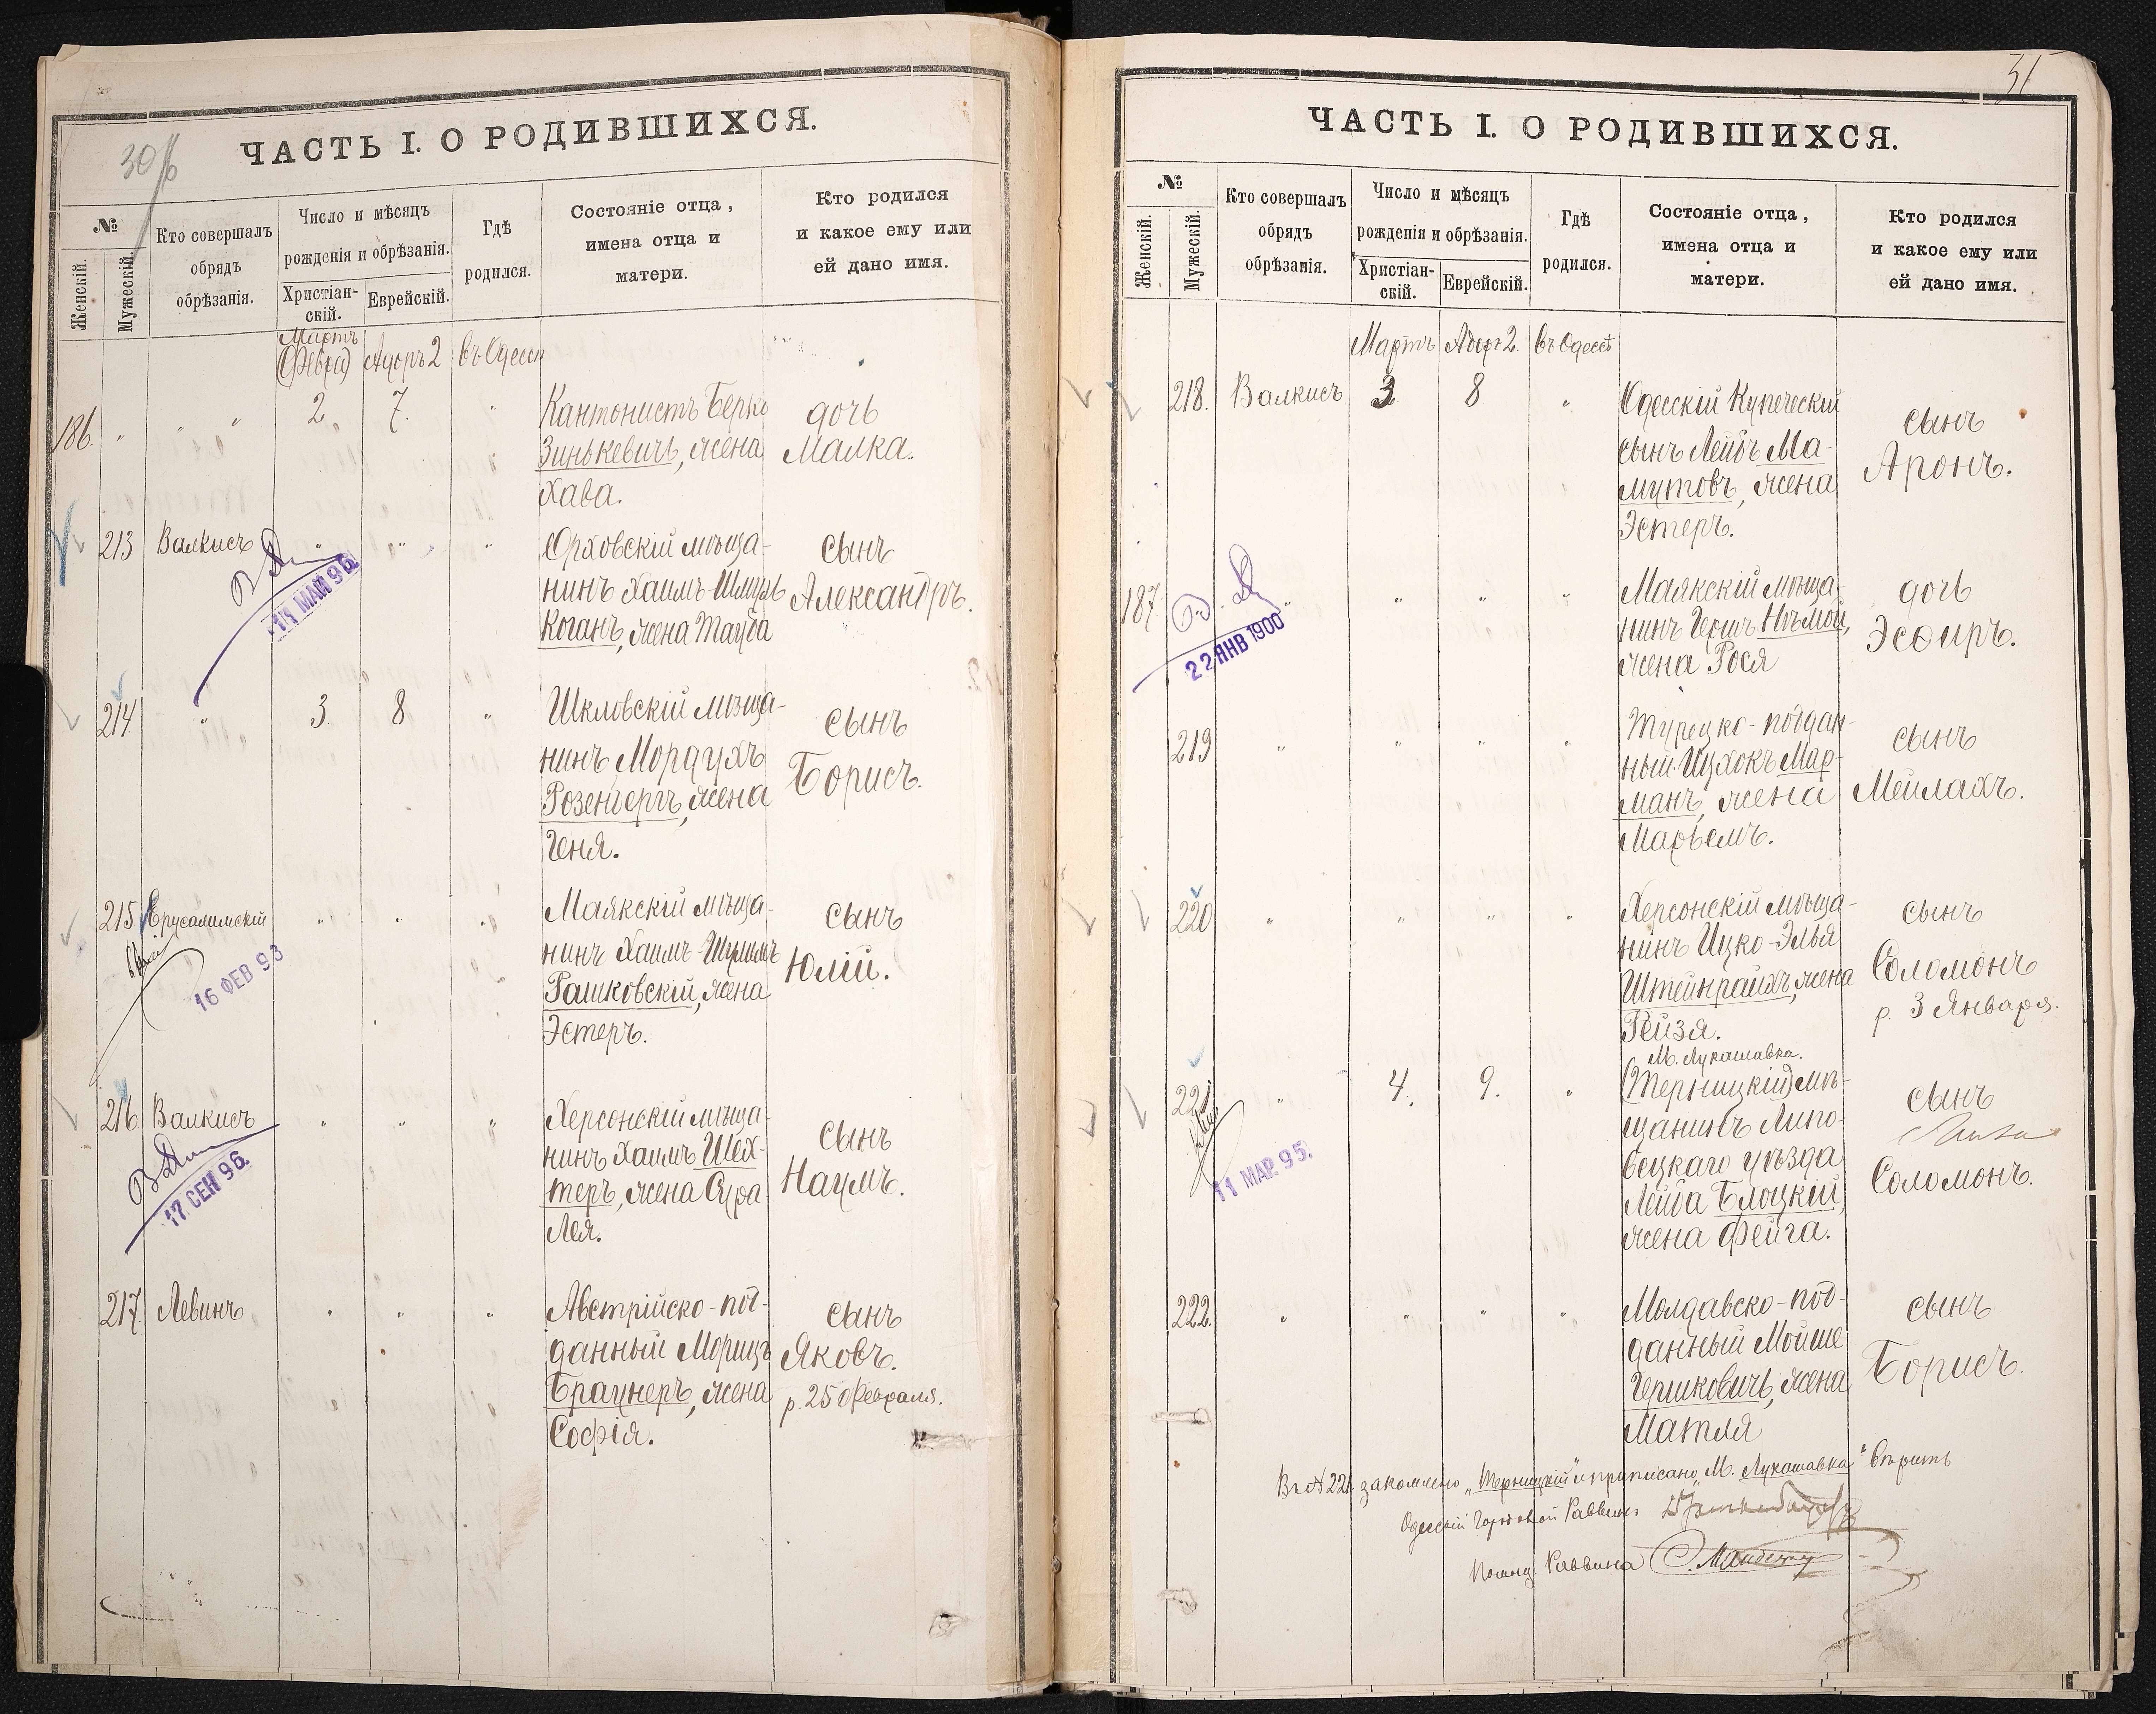 30
ЧАСТЬ I. О РОДИВШИХСЯ.
№
Женскій.
Мужескій.
Кто совершалъ
обрядъ
обрѣзанія.
Число и мѣсяцъ
рожденія и обрѣзанія.
Христіан-
скій.
Еврейскій.
Гдѣ
родился.
Состояніе отца,
имена отца и
матери.
Кто родился
и какое ему или
ей дано имя.
Мартъ
Адаръ 2 въ Одессѣ
186. " " " 2 7. " Кантонистъ Берко дочь
Зинькевичъ, жена Малка.
Хава.
213 Валкисъ " " " Орховскій мѣща- сынъ
нинъ Хаимъ-Шмуль Александръ.
Коганъ, жена Тауба
11 МАЙ 96
214 " 3 8 " Шкловскій мѣща- сынъ
нинъ Мордухъ Борисъ.
Розенбергъ, жена
Геня.
215 Ерусалимскій " " " Маякскій мѣща- сынъ
нинъ Хаимъ- Юлій.
Рашковскій, жена
Эстеръ.
16 ФЕВ 93
216 Валкисъ " " " Херсонскій мѣща- сынъ
нинъ Хаимъ Шех- Наумъ.
теръ, жена Сура
Лея.
17 СЕН 96
217. Левинъ " " " Австрійско-под- сынъ
данный Морицъ Яковъ.
Браунеръ, жена р. 25 Февраля.
Софія.
31
ЧАСТЬ I. О РОДИВШИХСЯ.
№
Женскій.
Мужескій.
Кто совершалъ
обрядъ
обрѣзанія.
Число и мѣсяцъ
рожденія и обрѣзанія.
Христіан-
скій.
Еврейскій.
Гдѣ
родился.
Состояніе отца,
имена отца и
матери.
Кто родился
и какое ему или
ей дано имя.
Мартъ Адаръ 2. въ Одессѣ
218. Валкисъ 3 8 " Одесскій Купеческій сынъ
сынъ Лейбъ Ма- Аронъ.
мутовъ, жена
Эстеръ.
187. " " " " Маякскій мѣща- дочь
нинъ Гершъ Нѣмой, Эсѳирь.
жена Рося
22 ЯНВ 1900
219 " " " " Турецко-поддан- сынъ
ный Ицхокъ Мар- Мейлахъ.
манъ, жена
Марьемъ.
220 " " " " Херсонскій мѣща- сынъ
нинъ Ицко-Элья Соломонъ
Штейнрайхъ, жена р. 3 Января.
Рейзя.
М. Лукашавка.
221 " 4. 9. " (Терницкій) мѣ- сынъ
щанинъ Липо- Соломонъ.
вецкаго уѣзда
Лейба Блоцкій,
жена Фейга.
11 МАР. 95.
222. " " " " Молдавско-под- сынъ
данный Мойше Борисъ.
Гершковичъ, жена
Матля
Въ № 221 "Терницкій" и приписано "М. Лукашавка" вѣрить
Одесскій Городовой Раввинъ
Помощ. Раввина